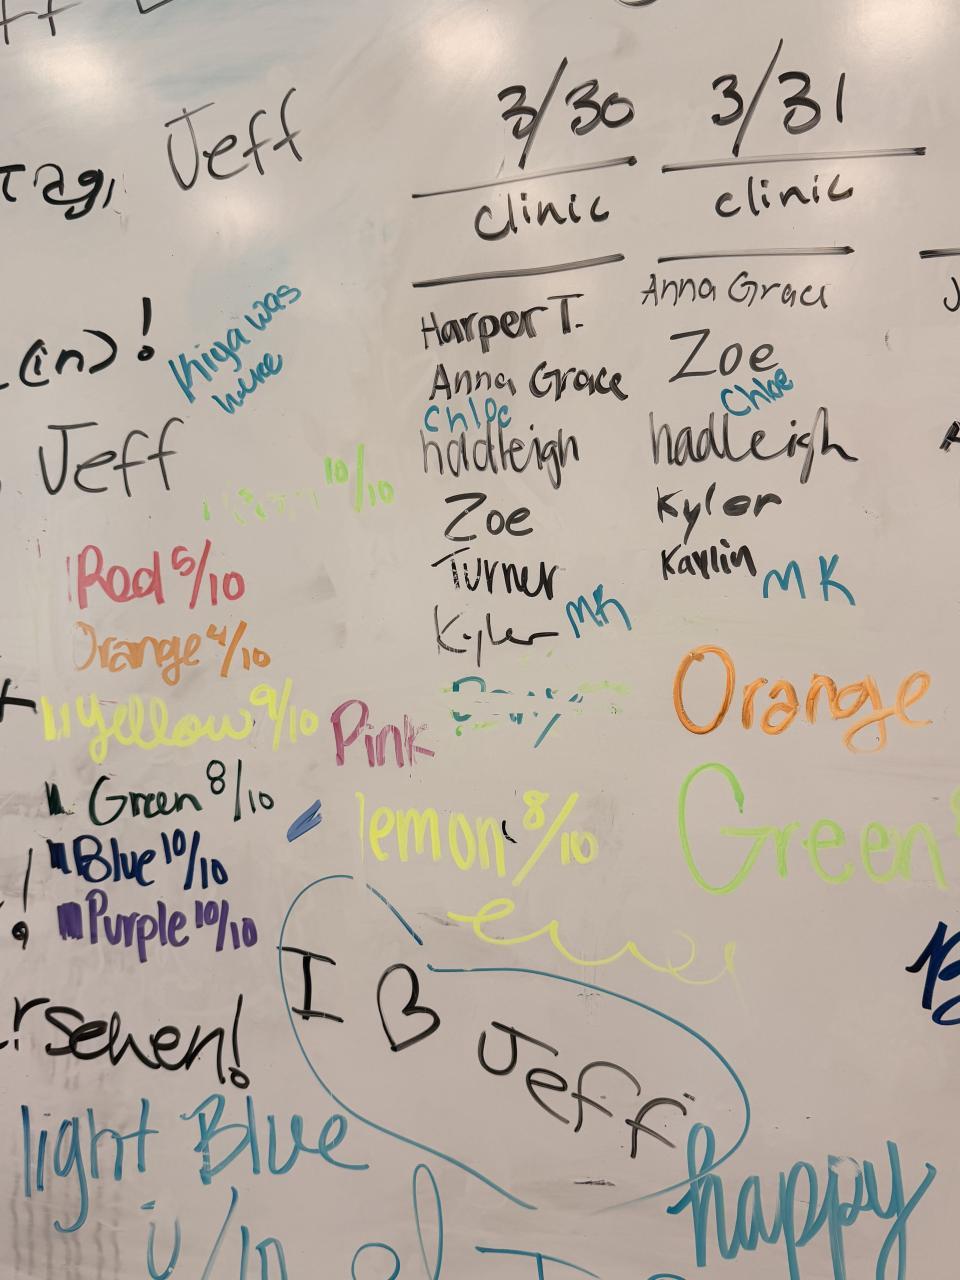 Jeff
3/30
3/31
clinic
clinic
Harper T.
Anna Grace
Chloe
hadleigh
Zoe
Turner
Kyler
MK
Anna Grace
Zoe
Chloe
hadleigh
Kyler
MK
(in)!
was
here
Jeff
10/10
Red 5/10
Orange 4/10
Yellow 9/10
Green 8/10
Blue 10/10
Purple 10/10
Pink
lemon 8/10
Orange
Green
I
Jeff
sehen!
light Blue
happy